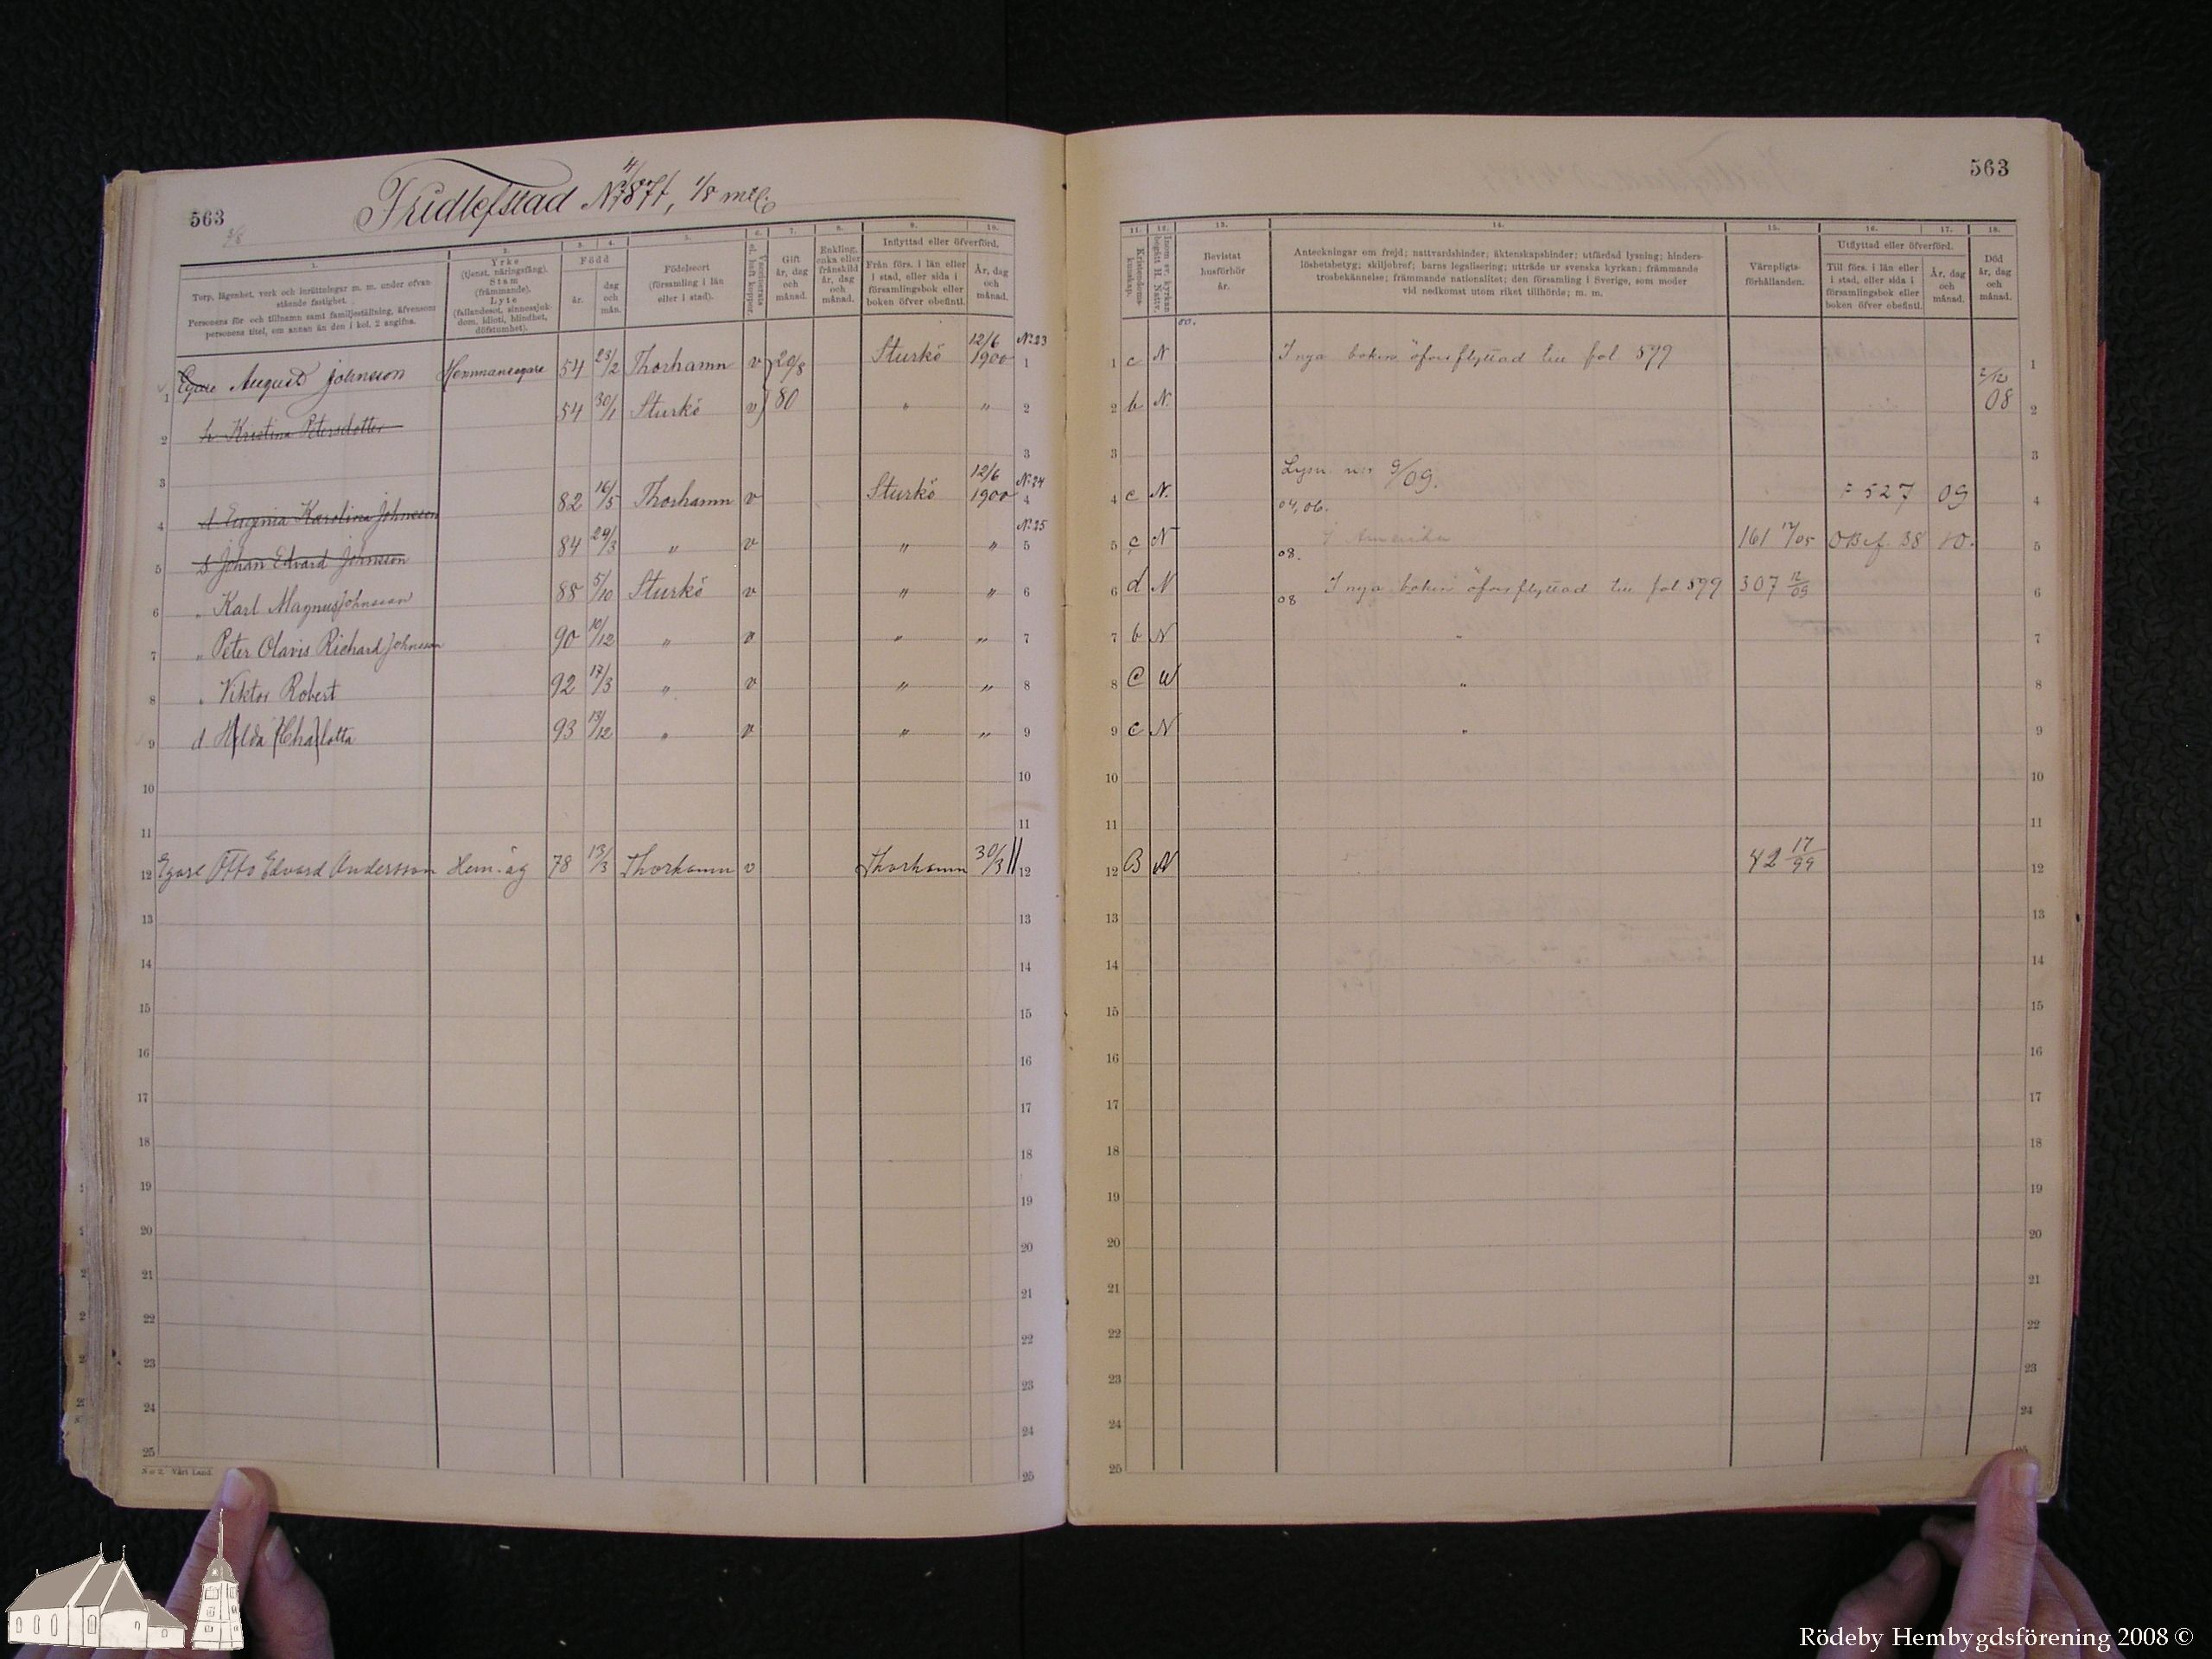 563
Fridlefstad
1/8 mtl.
1. 2. 3. 4. 5. 6. 7. 8. 9. 10.
Torp, lägenhet, verk och inrättningar m. m. under ofvanstående fastighet.
Personens för- och tillnamn samt familjeställning, äfvensom personens titel, om annan än den i kol. 2 angifna.
Yrke (tjenst, näringsfång). Stam (främmande). Lyte (fallandesot, sinnessjukdom, idioti, blindhet, döfstumhet).
Född
år. dag och mån.
Födelseort (församling i län eller i stad).
Vaccinerats el. haft koppor.
Gift år, dag och månad.
Enkling, enka eller frånskild år, dag och månad.
Inflyttad eller öfverförd.
Från förs. i län eller i stad, eller sida i församlingsbok eller boken öfver obefintl.
År, dag och månad.
1 Egare August Johnsson Hemmansegare 54 23/2 Thorhamn v 20/8 Sturkö 12/6 1900 No 23 1
2 h. Kristina Petersdotter 54 30/1 Sturkö v 80 " " 2
3 3
4 d Eugenia Karolina Johnsson 82 16/5 Thorhamn v Sturkö 12/6 1900 No 24 4
5 s. Johan Edvard Johnsson 84 29/3 " v " " No 25 5
6 " Karl Magnus Johnsson 88 5/10 Sturkö v " " 6
7 " Peter Olavis Richard Johnsson 90 10/12 " v " " 7
8 " Viktor Robert 92 17/3 " v " " 8
9 d Hilda Charlotta 93 13/12 " v " " 9
10 10
11 11
12 Egare Otto Edvard Andersson Hem.äg 78 13/3 Thorhamn v Thorhamn 30/3 11 12
13 13
14 14
15 15
16 16
17 17
18 18
19 19
20 20
21 21
22 22
23 23
24 24
25 25
N:o 2. Vårt Land.
563
11. 12. 13. 14. 15. 16. 17. 18.
Kristendomskunskap.
Inom sv. kyrkan begått H. Nattv.
Bevistat husförhör år.
Anteckningar om frejd; nattvardshinder; äktenskapshinder; utfärdad lysning; hinderslöshetsbetyg; skiljobref; barns legalisering; utträde ur svenska kyrkan; främmande trosbekännelse; främmande nationalitet; den församling i Sverige, som moder vid nedkomst utom riket tillhörde; m. m.
Värnpligtsförhållanden.
Utflyttad eller öfverförd.
Till förs. i län eller i stad, eller sida i församlingsbok eller boken öfver obefintl.
År, dag och månad.
Död år, dag och månad.
1 c N I nya boken öfverflyttad till fol 599 1
2 b N. 2/12 08 2
3 3
4 c N. 04, 06. 9/09. 527 09 4
5 c N 08. I Amerika 161 17/05 38 10. 5
6 d N 08 I nya boken öfverflyttad till fol 599 307 12/09 6
7 b N " 7
8 C U " 8
9 c N " 9
10 10
11 11
12 B N 42 17/99 12
13 13
14 14
15 15
16 16
17 17
18 18
19 19
20 20
21 21
22 22
23 23
24 24
25
Rödeby Hembygdsförening 2008 ©